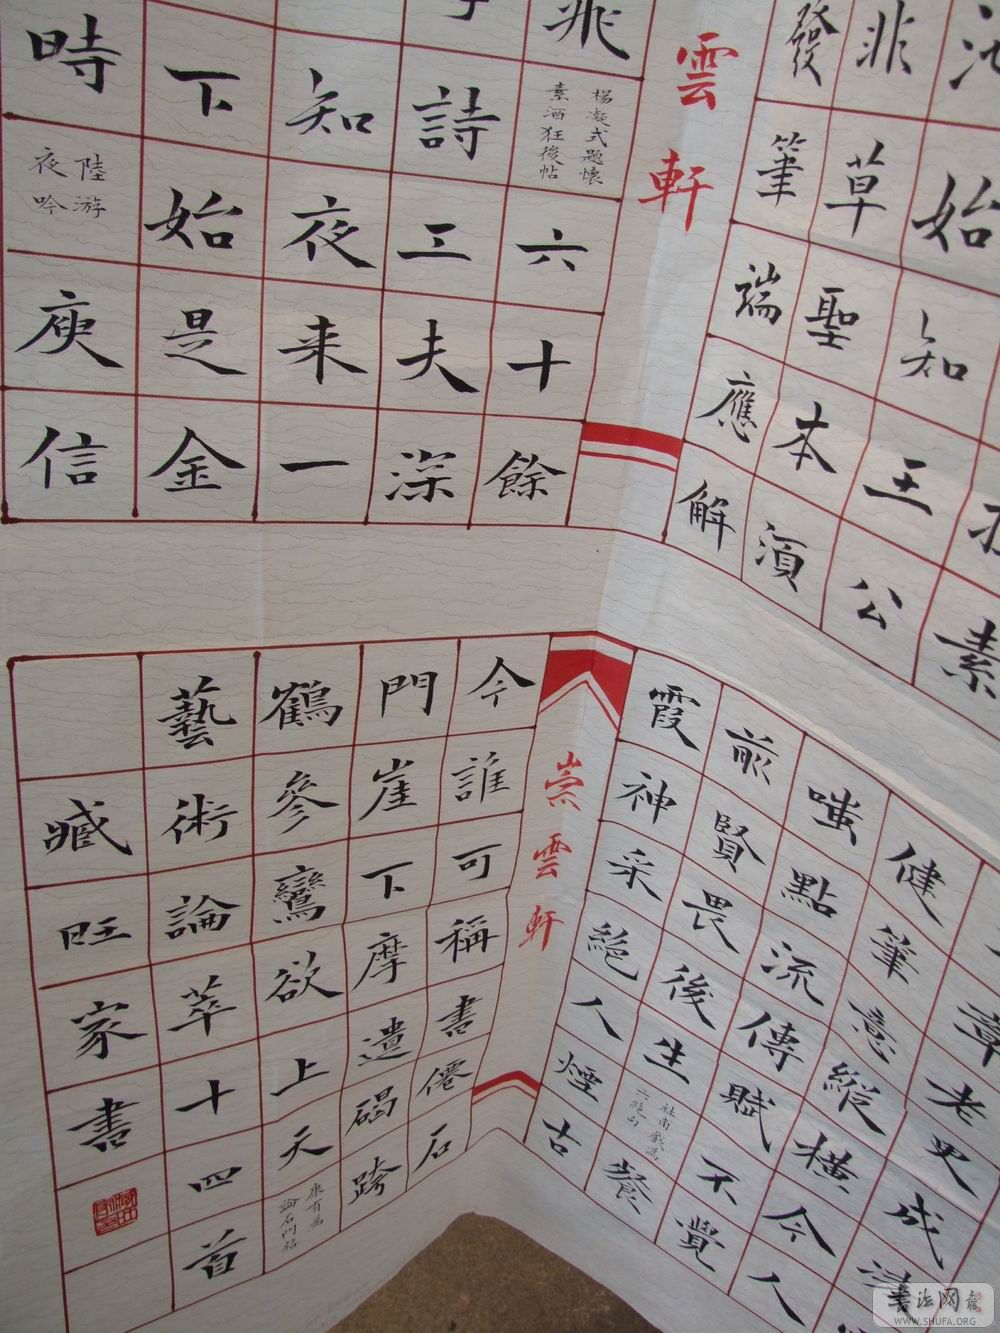 素
始知王公
非草聖本湏
發筆端應解
雲軒
楊凝式題懷
素酒狂後帖
六十餘
詩工夫深
知夜来一
下始是金
時
陸游
夜吟
庾信
章老更成
健筆意縱橫今人
嗤點流傳賦不覺
前賢畏後生
杜甫戲為
六絕句
餐
霞神采絕人煙古
崇雲軒
今誰可稱書僊石
門崖下摩遺碣跨
鶴參鸞欲上天
康有為
論石門銘
藝術論萃十四首
臧旺家書
書法网
WWW.SHUFA.ORG